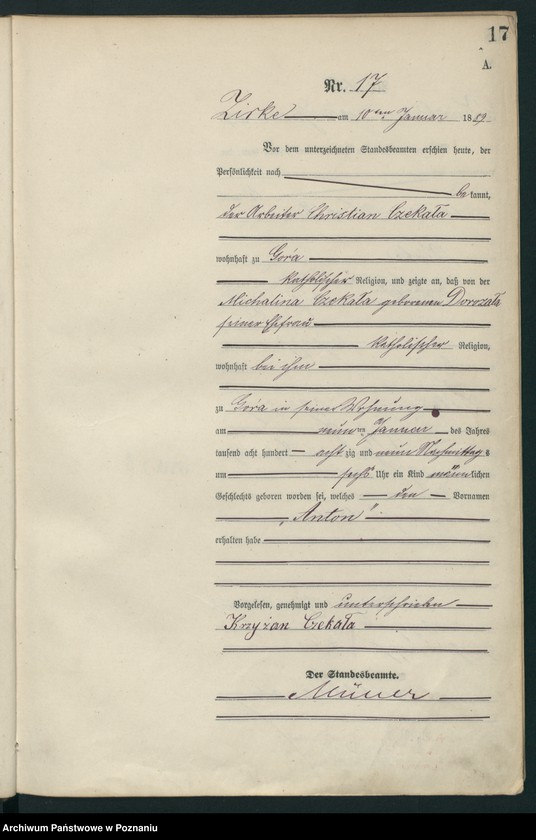 17
A.
Nr. 17
Zirke am 10ten Januar 1889
Vor dem unterzeichneten Standesbeamten erschien heute, der
Persönlichkeit nach
bekannt,
der Arbeiter Christian Czekała
wohnhaft zu Góra
katholischer Religion, und zeigte an, daß von der
Michalina Czekała geborenen Dorozała
seiner Ehefrau
katholischer Religion,
wohnhaft bei ihm
zu Góra in seiner Wohnung
am neunten Januar des Jahres
tausend acht hundert achtzig und neun Nachmittags
um sechs Uhr ein Kind männlichen
Geschlechts geboren worden sei, welches den Vornamen
„Anton“
erhalten habe
Vorgelesen, genehmigt und unterschrieben
Krzyżan Czekała
Der Standesbeamte.
Archiwum Państwowe w Poznaniu